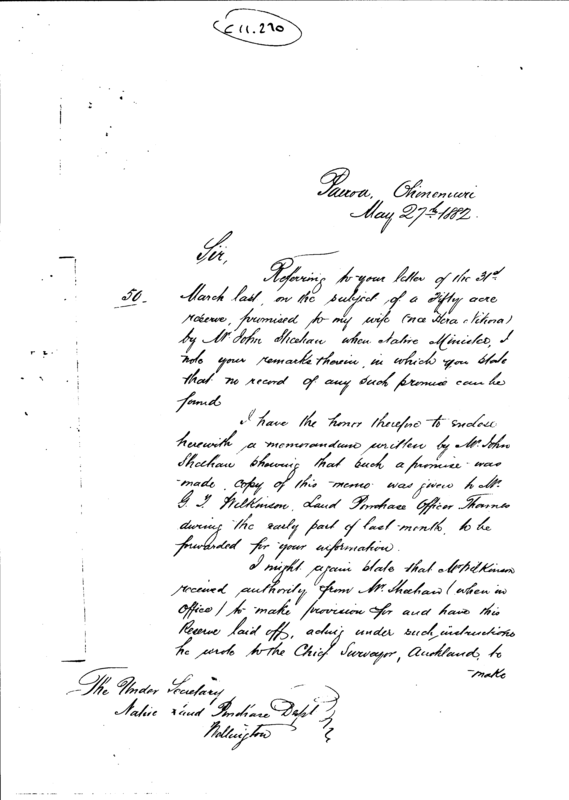 C 11.270
Paeroa, Ohinemuri
May 27th 1882.
Sir,
Referring to your letter of the 31st
50.
March last, on the subject of a Fifty acre
reserve, promised to my wife (nee Hera
by Mr John Sheehan when Native Minister, I
note your remarks therein, in which you state
that no record of any such promise can be
found
I have the honor therefore to enclose
herewith a memorandum written by Mr. John
Sheehan shewing that such a promise was
made, copy of this memo was given to Mr.
G. T. Wilkinson, Land Purchase Officer Thames
during the early part of last month, to be
forwarded for your information.
I might again state that Mr Wilkinson
received authority from Mr. Sheehan (when in
Office) to make provision for and have this
Reserve laid off, acting under such instructions
he wrote to the Chief Surveyor, Auckland, to
make
The Under Secretary
Native Land Purchase Dept
Wellington